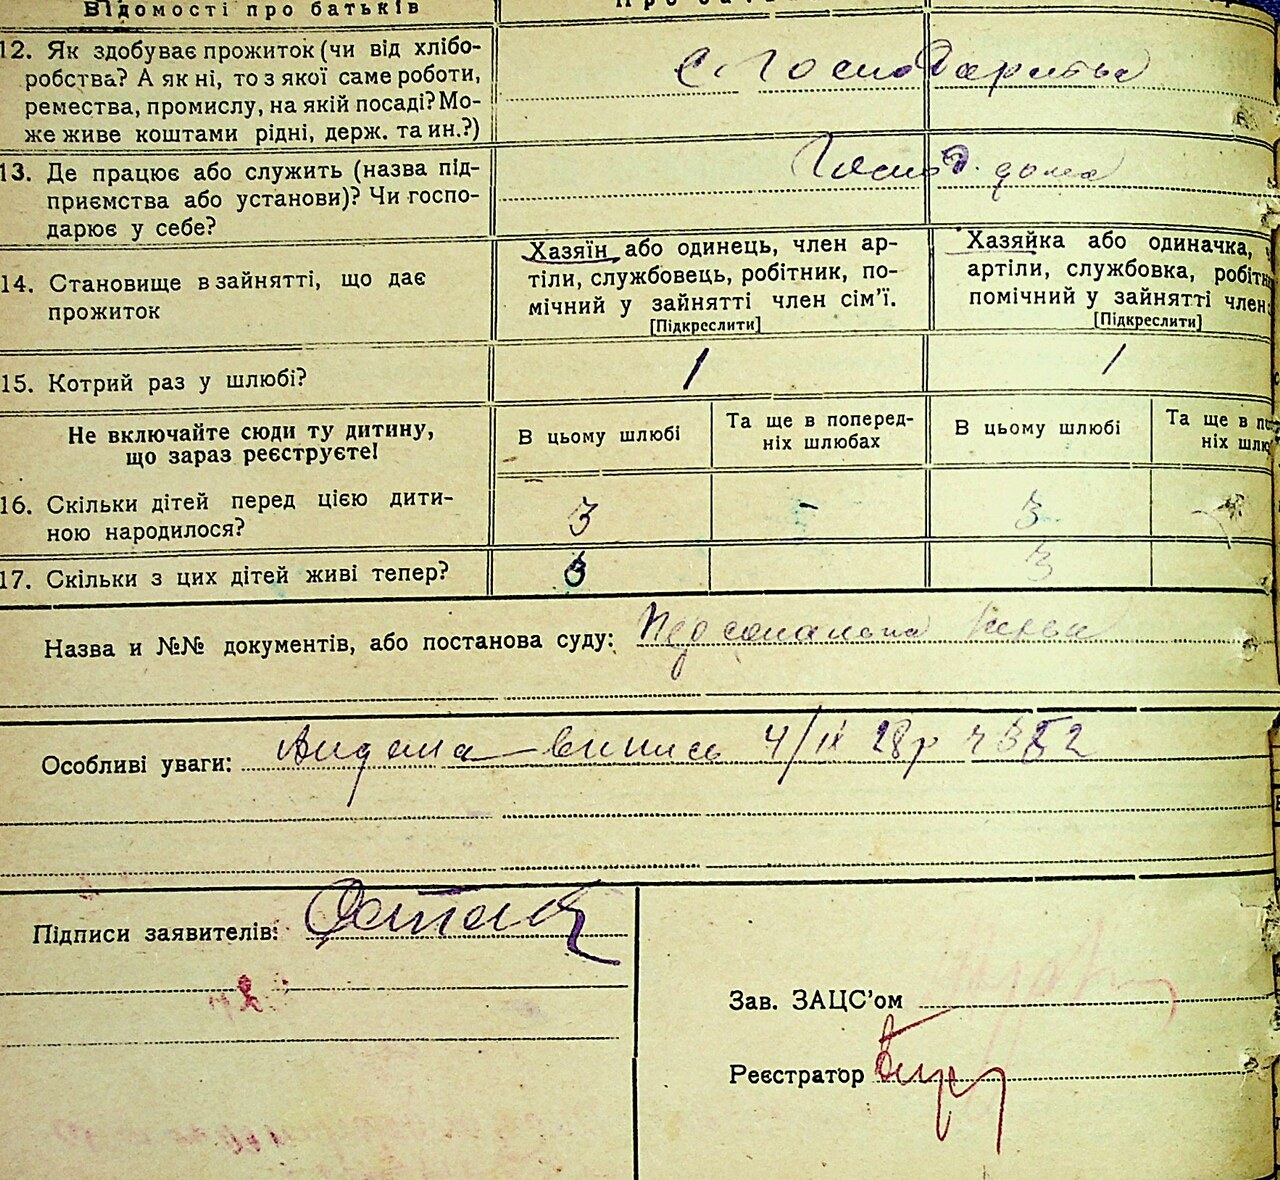 Відомості про батьків
12. Як здобуває прожиток (чи від хлібо-
робства? А як ні, то з якої саме роботи,
ремества, промислу, на якій посаді? Мо-
же живе коштами рідні, держ. та ин.?)
С Господарства
13. Де працює або служить (назва під-
приємства або установи)? Чи госпо-
дарює у себе?
Господ. дома
14. Становище в зайнятті, що дає
прожиток
Хазяїн або одинець, член ар-
тіли, службовець, робітник, по-
мічний у зайнятті член сім'ї.
[Підкреслити]
Хазяйка або одиначка,
артіли, службовка, робітн
помічний у зайнятті член
[Підкреслити]
15. Котрий раз у шлюбі?
1
1
Не включайте сюди ту дитину,
що зараз реєструєте!
В цьому шлюбі
Та ще в поперед-
ніх шлюбах
В цьому шлюбі
Та ще в по
ніх шлю
16. Скільки дітей перед цією дити-
ною народилося?
3
-
3
17. Скільки з цих дітей живі тепер?
3
3
Назва и №№ документів, або постанова суду:
Особливі уваги: Видана випись 4/IX 28р
Підписи заявителів: Остап
Зав. ЗАЦС'ом
Реєстратор